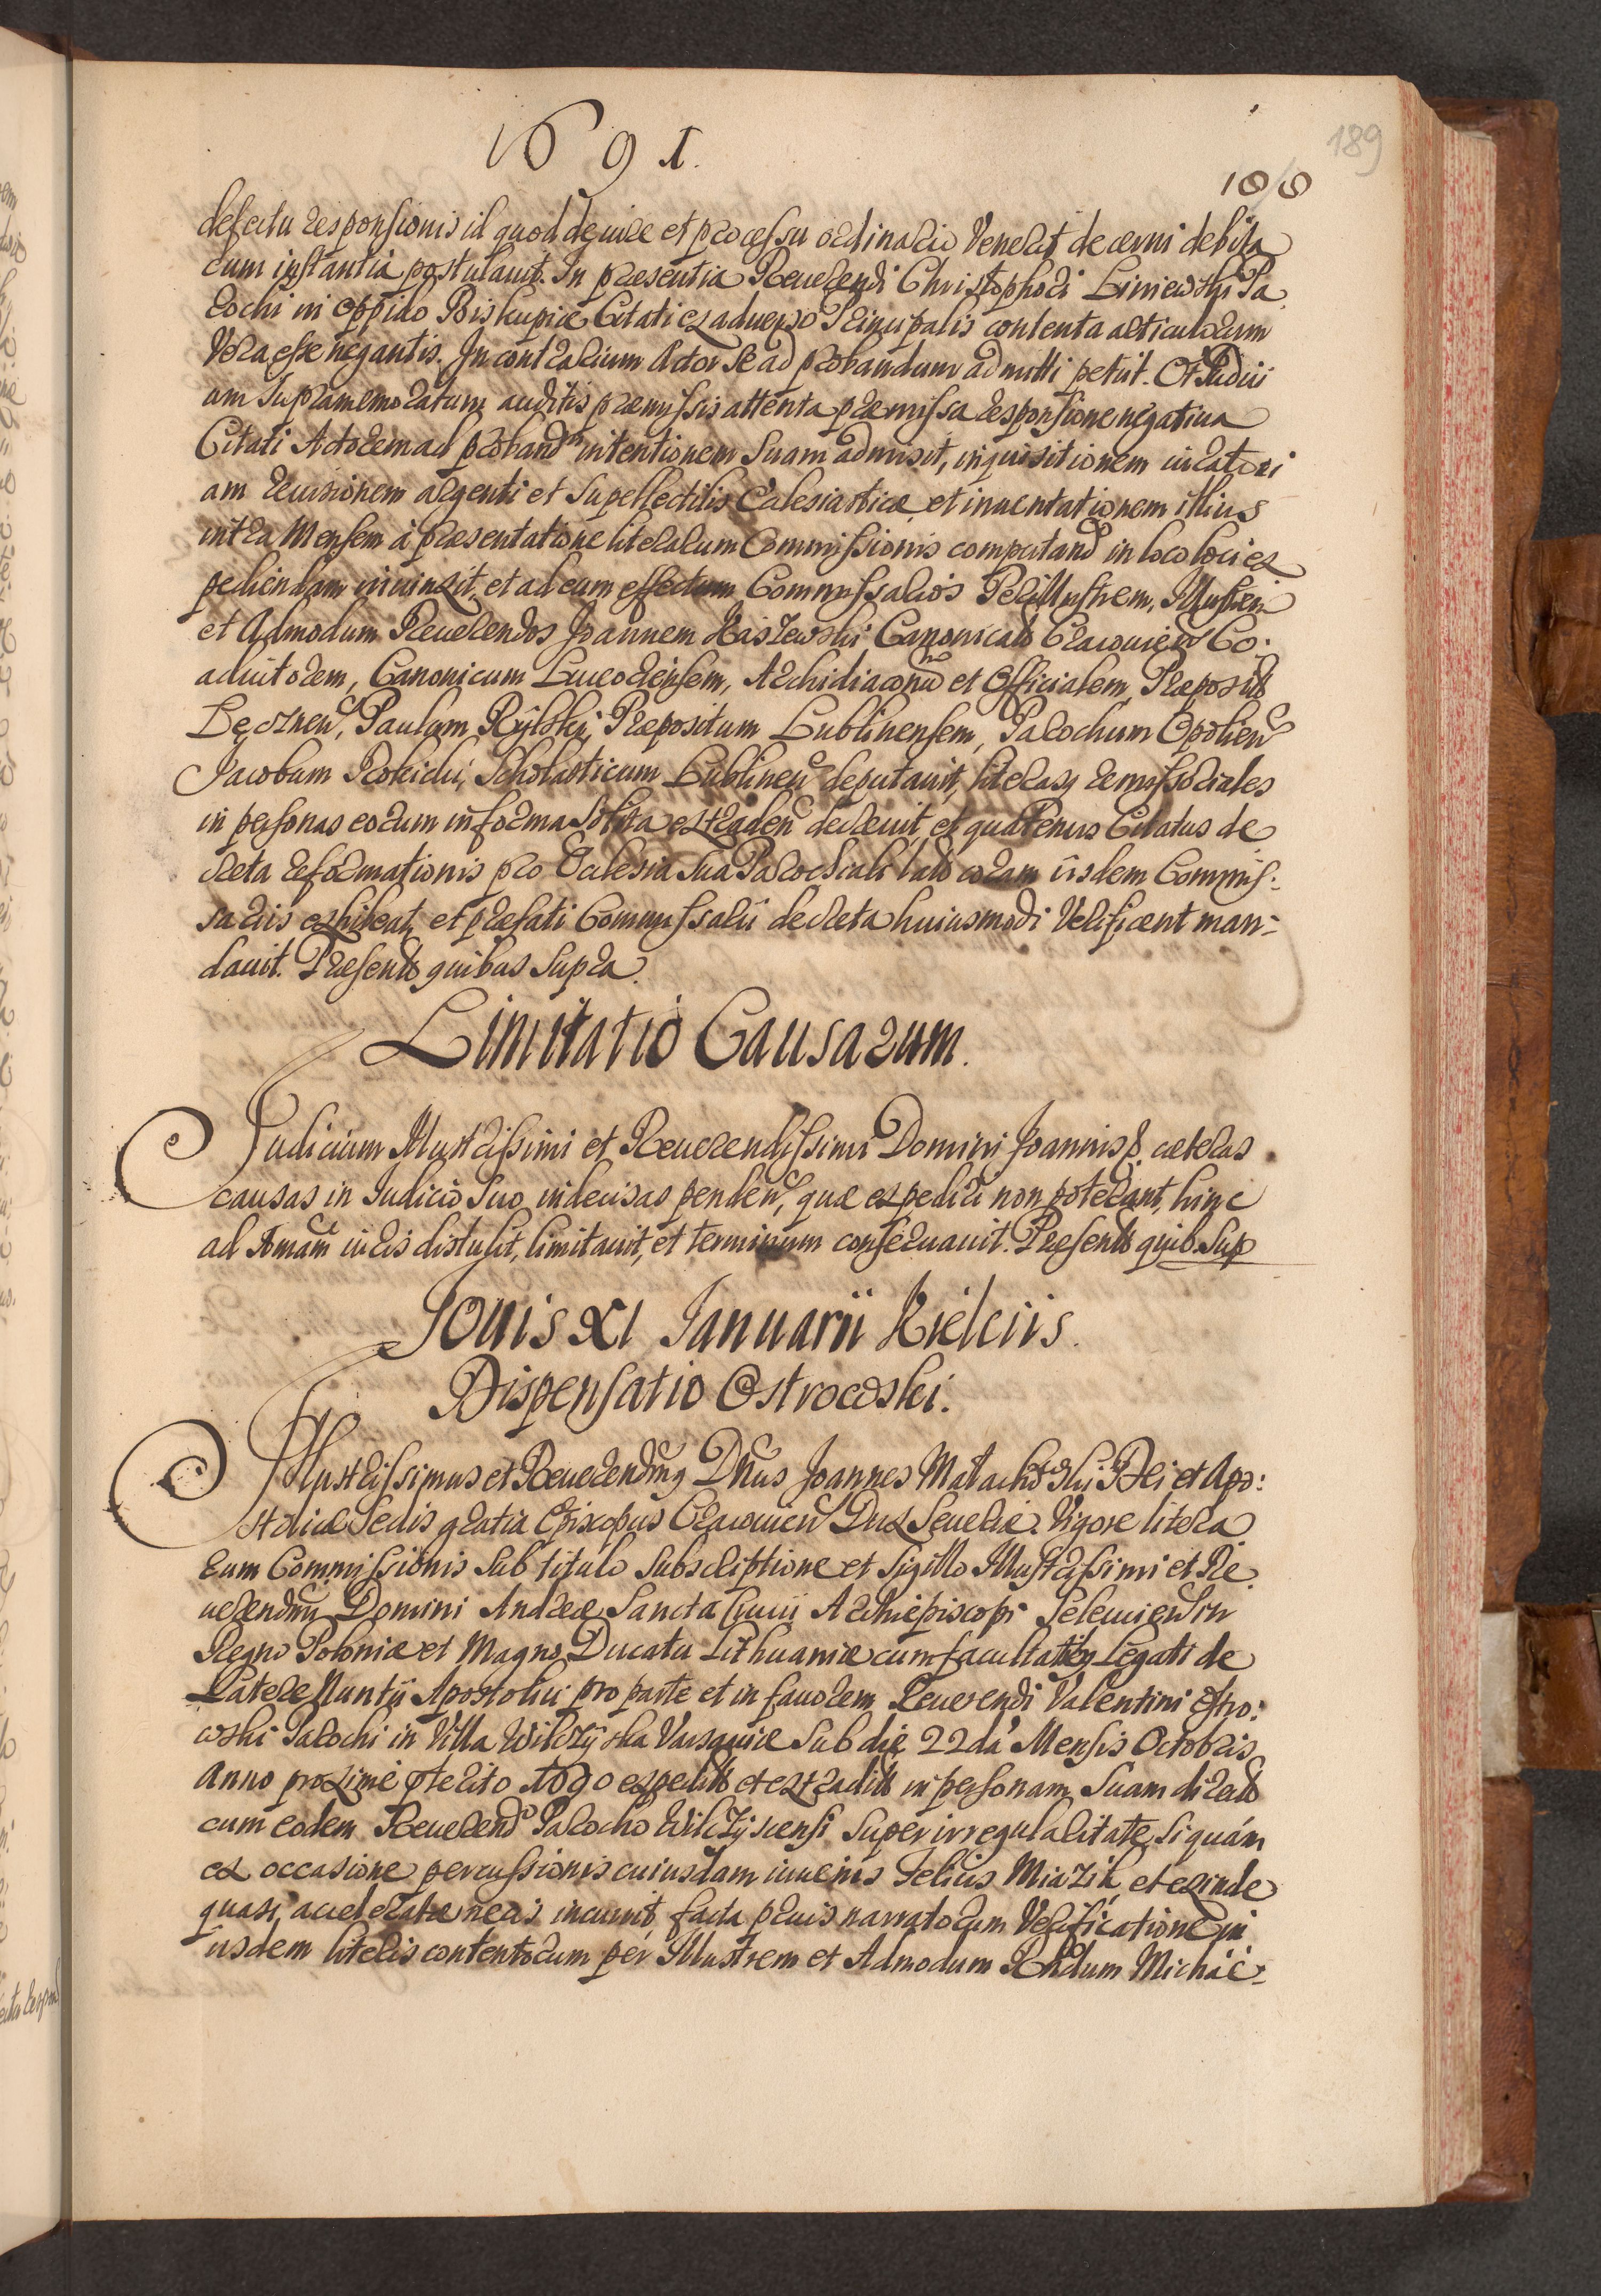 1691.
189
186
defectu responsionis id quod de iure et processu ordinario Venerit decerni debita
cum instantia postulauit. In praesentia Reuerendi Christophori Liniewski Pa
rochi in oppido Biskupice Citati ex aduerso Principalis contenta articulorum
Vera esse negantis. In contrarium Actor se ad probandum admitti petiit. Et Iudici
um supramemoratum auditis praemissis attenta praemissa responsione negatiua
Citati Actorem ad proband intentionem suam admisit, inquisitionem iuratori
am reuisionem argenti et supellectilis Ecclesiasticae et inuentationem illius
intra Mensem à praesentatione literarum Commissionis computand in loco loci ex
pediendam iniunxit, et ad eum effectum Commissarios Perillustrem, Illustrem
et Admodum Reuerendos Joannem Canonicatus Cracouien Co:
adiutorem, Canonicum Luceoriensem, Archidiaconum et Officialem, Praeposit
Paulum Rylski, Praepositum Lublinensem, Parochum Opolien
Jacobum Rokicki, Scholasticum Lublinen deputauit, literasq remissoriales
in personas eorum in forma solita extraden decreuit, et quatenus Citatus de
creta reformationis pro Ecclesia sua Parochiali lata coram iisdem Commis:
sariis exhibeat, et praefati Commissarii decreta huiusmodi Verificent man=
dauit. Praesentib quibus supra.
Limitatio Causarum.
Judicium Illustrissimi et Reuerendissimi Domini Joannis &. caeteras
causas in Iudicio suo indecisas penden, quae expediri non poterant, hinc
ad Amam iuris distulit, limitauit, et terminum conseruauit. Praesentib quib. sup
Jouis XI Januarii Kielciis.
Dispensatio Ostrowski.
Illustrissimus et Reuerendmus Dnus Joannes Małachowski Dei et Apo:
stolicae Sedis gratia Episcopus Cracouien Dux Seueriae. Vigore litera
rum Commissionis sub titulo subscriptione et sigillo Illustrissimi et Re
uerendmi Domini Andreae Sancta Crucii Archiepiscopi Seleucien in
Regno Poloniae et Magno Ducatu Lithuaniae cum facultatib Legati de
Latere Nuntii Apostolici pro parte et in fauorem Reuerendi Valentini Ostro:
wski Parochi in Villa Wilczyska Varsauiae sub die 22da Mensis Octobris
Anno proxime pterito 1690 expedit et extradit in personam suam direct
cum eodem Reuerend Parocho Wilczyscensi super irregularitate, si quam
ex occasione percussionis cuiusdam iuuenis Felicis Miazik et exinde
quasi acceleratae necis incurrit, facta prius narratorum Verificatione in
iisdem literis contentorum per Illustrem et Admodum Rndum Michaë=